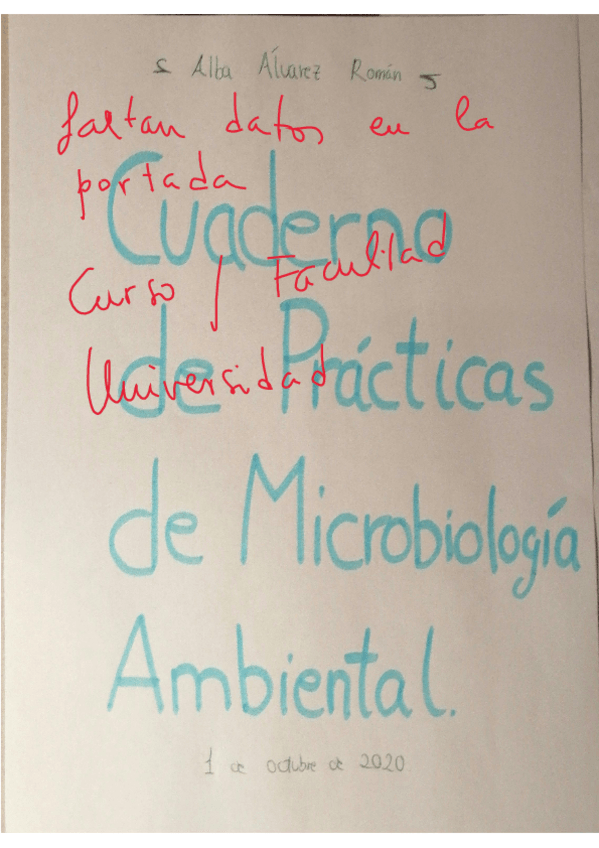 Alba Álvarez Román
faltan datos en la
portada
Cuaderno
Curso / Facultad
de Prácticas
Universidad
de Microbiología
Ambiental.
1 de octubre de 2020